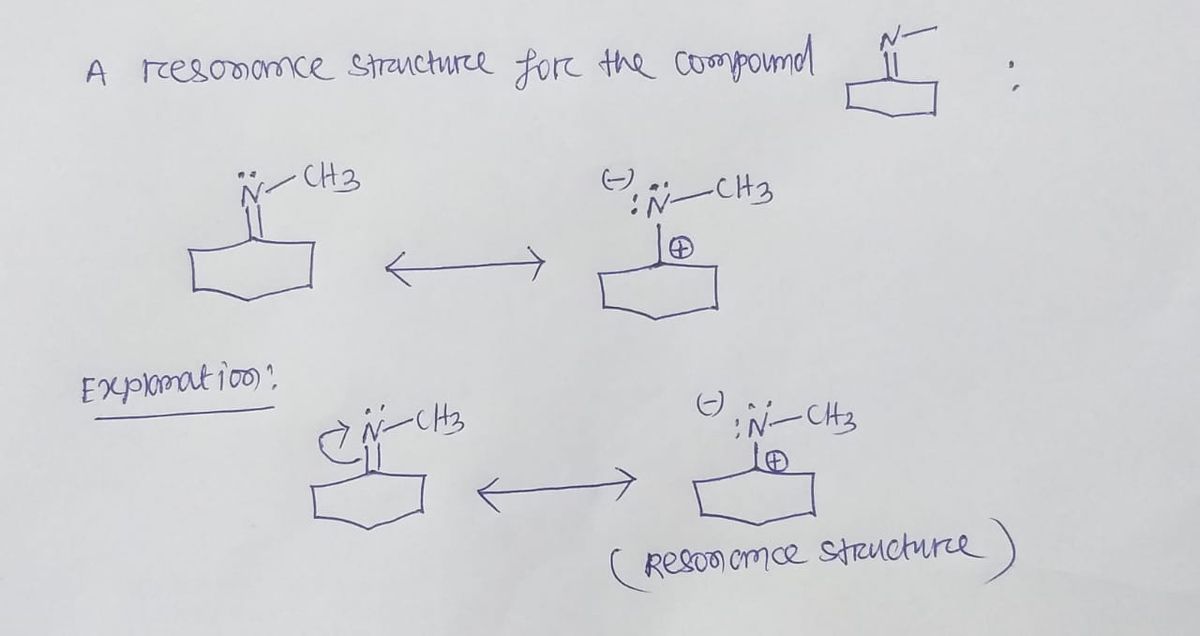 A resonance structure for the compound N :
N̈ CH3
(-) :N̈ — CH3
⊕
Explanation:
N̈ — CH3
(-) :N̈ — CH3
⊕
(Resonance structure)